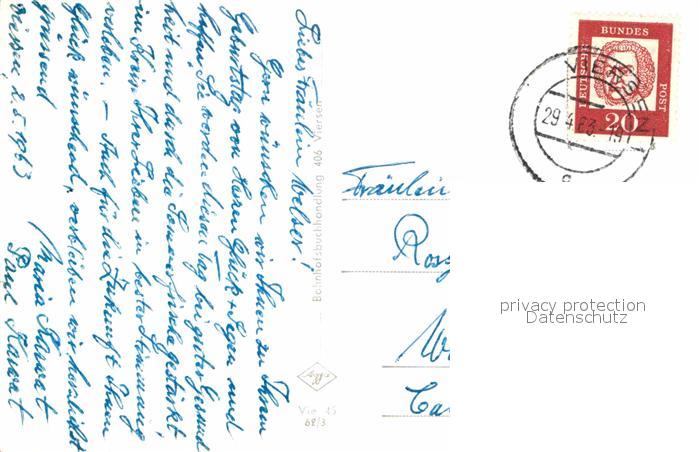 Liebes Fräulein Welser!
Gern wünschen wir Ihnen zu Ihrem
Geburtstag von Herzen Glück + Segen und
hoffen Sie werden diesen Tag bei guter Gesund
heit und durch die Sommerfrische gestärkt
im Kreis Ihrer Lieben in bester Stimmung
verleben. – Auch für die Zukunft Ihnen
Glück wünschend, verbleiben wir herzlichst
grüssend
Viersen 2.5.1963
Maria
Paul
Bahnhofsbuchhandlung 406 Viersen
Vie 45
62/3
DEUTSCHE
BUNDES
POST
20
VIERSEN
29.4.63-19
c
Fräulein
Ros
W
Ca
privacy protection
Datenschutz